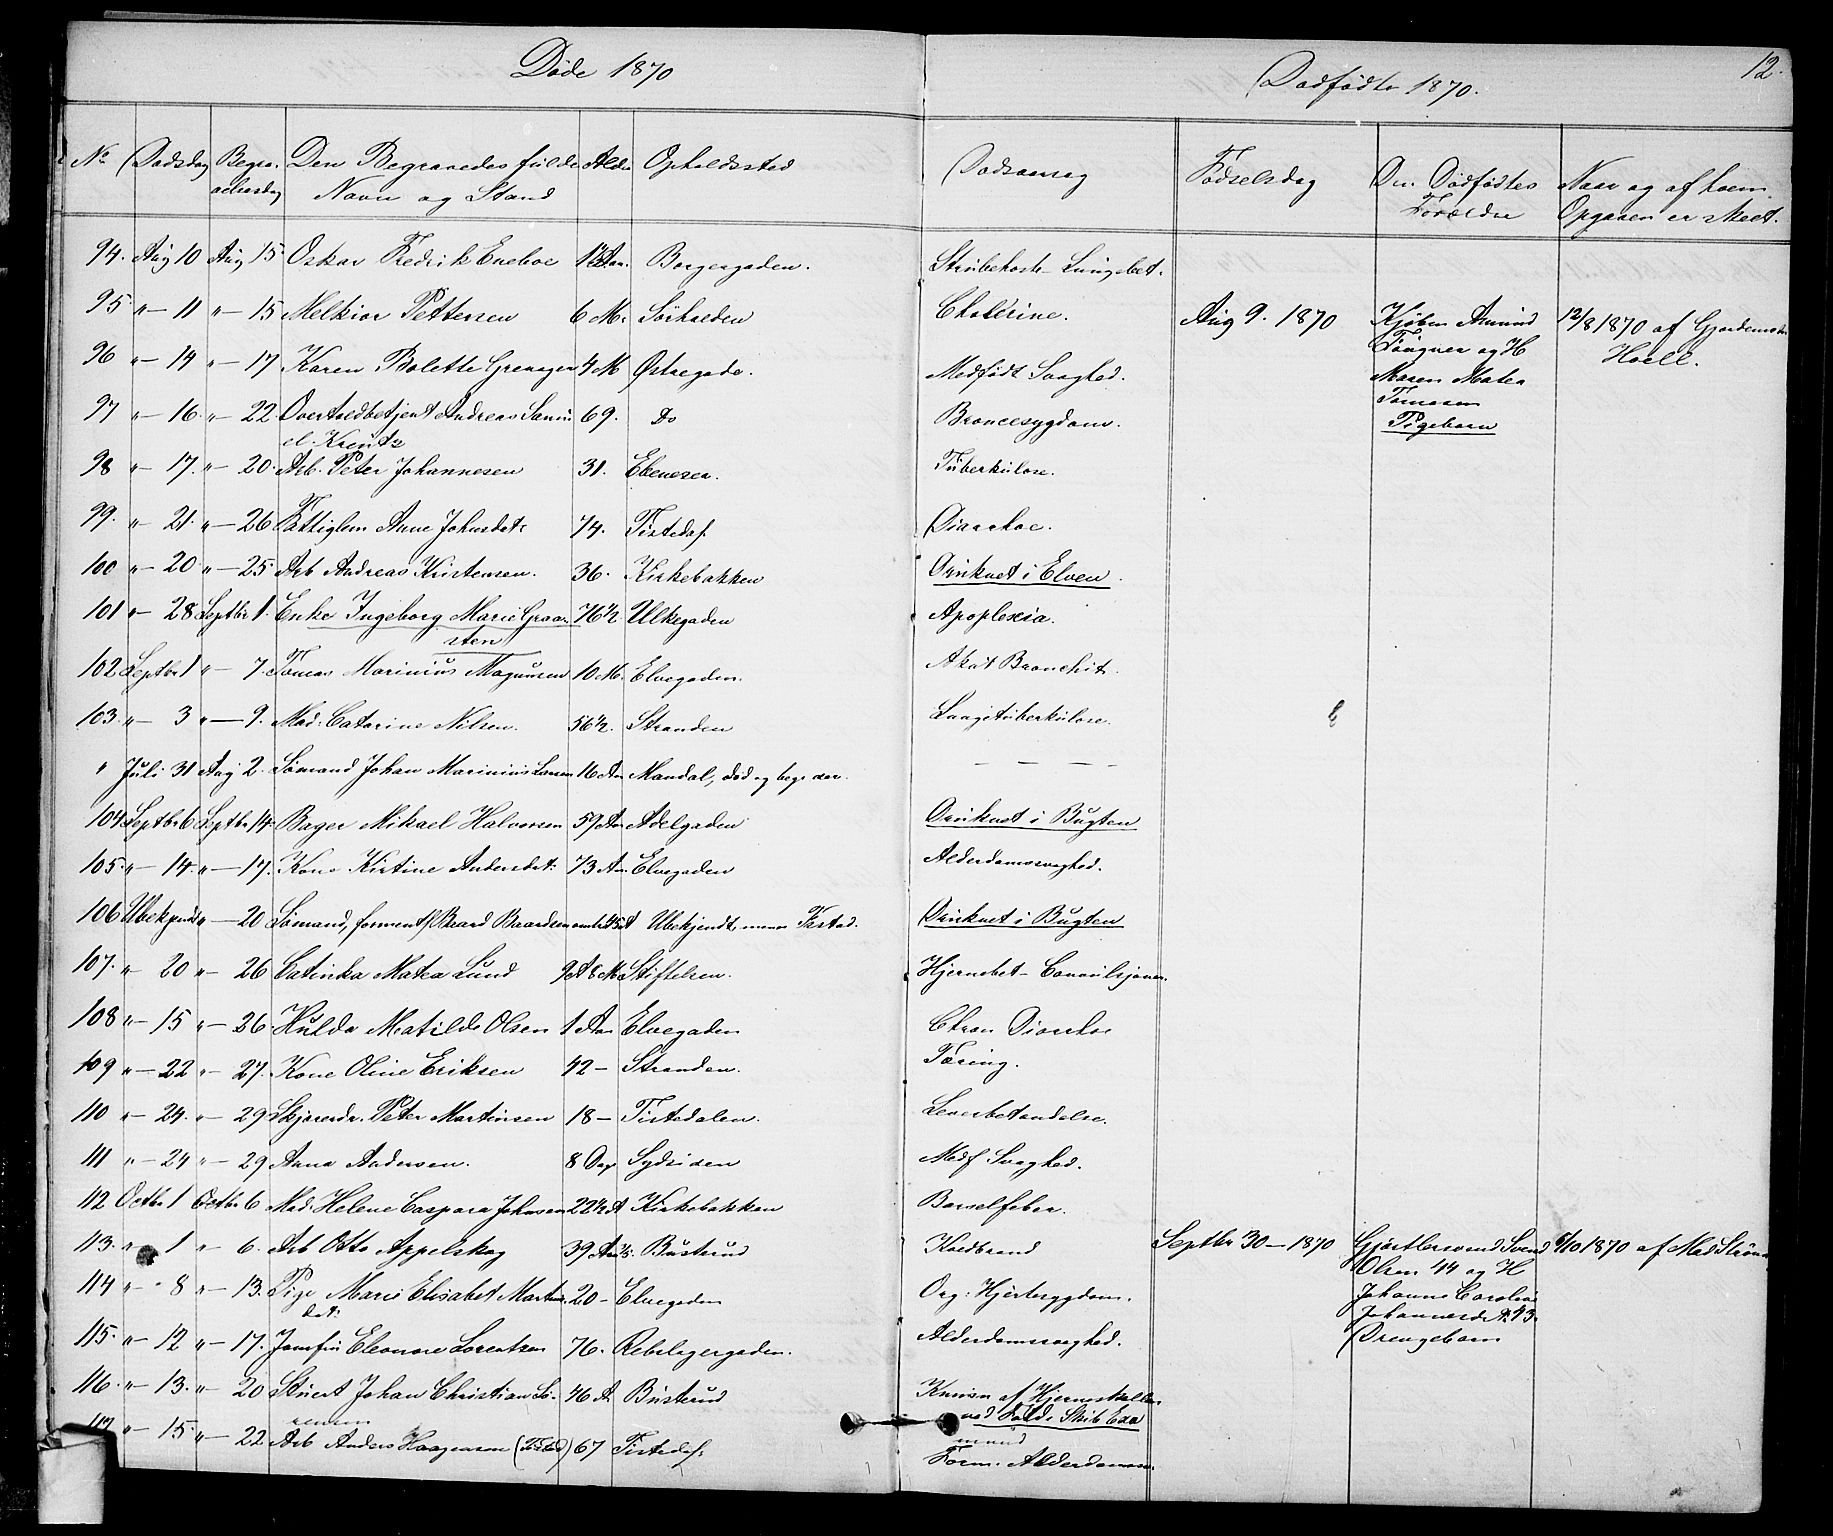 Døde 1870
Dødfødte 1870.
12.
No Dødsdag Begra- Den Begravedes fulde Alder Opholdssted Dødsaarsag Fødselsdag Den Dødfødtes Naar og af hvem
velsesdag Navn og Stand Forældre Opgaven er skeet.
94. Aug 10 Aug 15. Oskar Fredrik Eneboe Aar. Borgergaden. Strubehoste Lungebet.
95 " — 11 " — 15 Melkior Pettersen 6 M. Sørhalden Cholerine. Aug 9. 1870 Kjøbm Amund 12/8 1870 af Gjordemoder
Fougner og H Hoell.
96 " — 14 " — 17 Karen Bolette Grenager 4 M Østregade. Medfødt Svaghed. Maren Matea
97 " — 16. " — 22 Overtoldbetjent Andreas Samu 69. Do Broncesygdom. Tomesen
el Kreutz Pigebarn
98 " — 17. " — 20. Arb. Peter Johannesen 31. Ebeneser. Tuberkulose.
99. " — 21. " — 26 Fattiglem Anne Johnsdatr 74. Tistedal. Diarrhoe.
100 " — 20 " — 25 Arb Andreas Kristensen. 36. Kirkebakken Druknet i Elven.
101 " — 28 Septbr 1. Enke Ingeborg Marie Graar 76 1/2. Ulkegaden Apoplexia.
sten
102 Septbr 1 " — 7. Tomas Marinius Magnusen 10 M. Elvegaden. Akut Bronchit.
103. " — 3 " — 9. Mad: Catarine Nilsen. 56 1/2. Stranden Lungetuberkulose.
" Juli 31 Aug 2. Sømand Johan Marinius Larsen 16 Aar Mandal, død og begr der. — — —
104 Septbr 6 Septbr 14. Bager Mikael Halvorsen 59 Aar Adelgaden Druknet i Bugten
105. " — 14. " — 17. Kone Kirstine Andersdt. 73 Aar. Elvegaden Alderdomssvaghed.
106 Ubekjendt " — 20 Sømand, forment Baard Baardsen omtr 45 A Ubekjendt, menes Tistad. Druknet i Bugten
107. " — 20 " — 26 Catinka Matea Lund 9 A 8 M. Stiftelsen. Hjernebet— Convulsjoner.
108 " — 15 " — 26 Hulda Matilde Olsen 1 Aar Elvegaden Chron Diarrhoe
109 " — 22 " — 27. Kone Oline Eriksen 42 — Stranden. Tæring.
110 " — 24. " — 29 Skjærerdr. Peter Martinsen 18 — Tistedalen. Leverbetændelse.
111 " — 24 " — 29 Anna Andersen. 8 Dag Sydsiden Medf Svaghed.
112 Octbr 1 Octbr 6 Mad. Helene Caspara Johnsen 22 1/2 A Kirkebakken Barselfeber.
113. " — 1 " — 6. Arb Otto Appelskog 39 Aar 1/2. Busterud Koldbrand Septbr 30 — 1870 Gjørtlersvend Svend 6/10 1870 af Mad Strøm
Olsen 44 og H
114 " — 8 " — 13. Pige Marie Elisabet Martin 20 — Elvegaden Org: Hjertesygdom. Johanne Caroline
dat: Johannesdt A. 43.
115. " — 12 " — 17. Jomfru Eleonore Lorentzen 76. Rebslagergaden. Alderdomssvaghed. Drengebarn
116. " — 13. " — 20 Stuert Johan Christian Sø- 46 A. Busterud Knusn af Hjerneskallen
rensen ved Fald i Skib
117 " — 15. " — 22 Arb Anders Haagensen (Tisted) 67 Tistedal. Form. Alderdomssv.